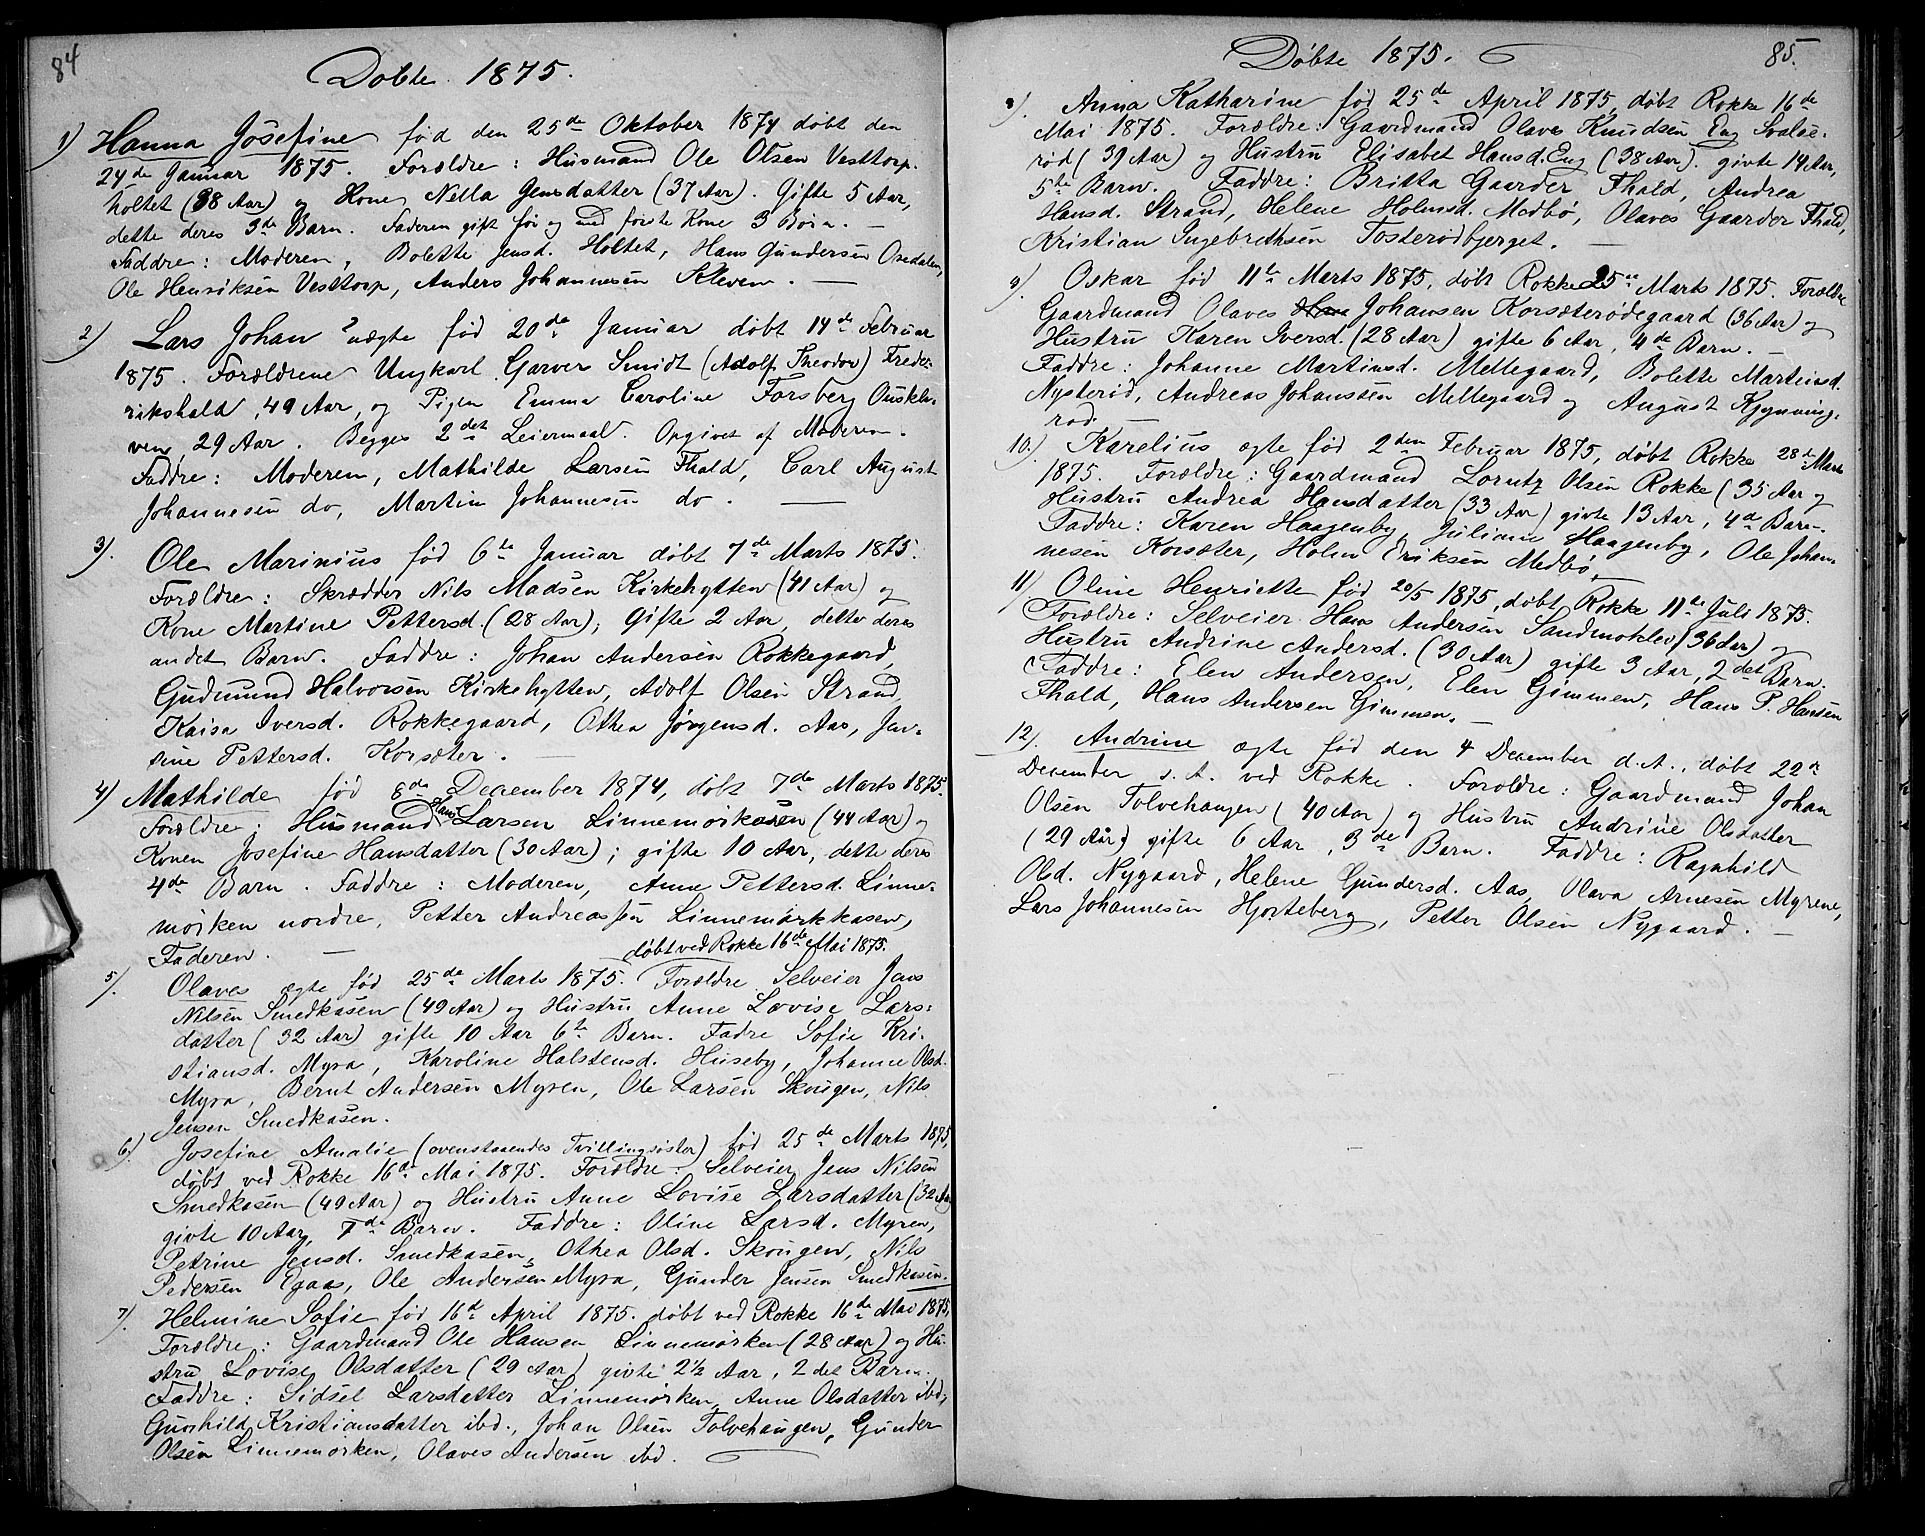 84
Døbte 1875.
1) Hanna Josefine født den 25de Oktober 1874 døbt den
24de Januar 1875. Forældre: Husmand Ole Olsen Vesttorp-
holtet (38 Aar) og Kone Nella Jensdatter (37 Aar). Gifte 5 Aar,
dette deres 3de Barn. Faderen gift før og med første Kone 3 Børn. —
Faddre: Moderen, Bolette Jensd. Holtet, Hans Gundersen Osedalen,
Ole Henriksen Vesttorp, Anders Johannesen Kleven. —
2) Lars Johan uægte fød 20de Januar døbt 14de Februar
1875. Forældrene Ungkarl Garver Smidt (Adolf Theodor) Freder-
rikshald, 49 Aar, og Pigen Emma Caroline Forsberg
ven, 29 Aar. Begges 2det Leiermaal. Opgivet af Moderen.
Faddre: Moderen, Mathilde Larsen Fhald, Carl August
Johannesen do, Martin Johannesen do. —
3). Ole Marinius fød 6te Januar døbt 7de Marts 1875.
Forældre: Skrædder Nils Madsen Kirkehytten (41 Aar) og
Kone Martine Pettersd. (28 Aar); Gifte 2 Aar, dette deres
andet Barn. Faddre: Johan Andersen Rokkegaard,
Gudmund Halvorsen Kirkehytten, Adolf Olsen Strand,
Kaisa Iversd. Rokkegaard, Othea Jørgensd. Aas, Jen-
sine Pettersd. Korsæter. —
4) Mathilde fød 8de December 1874, døbt 7de Marts 1875.
Forældre: Husmand Hans Larsen Linnemørkasen (44 Aar) og
Konen Josefine Hansdatter (30 Aar); gifte 10 Aar, dette deres
4de Barn. Faddre: Moderen, Anne Pettersd. Linne-
mørken nordre, Petter Andreassen Linnemørkkasen,
Faderen. —
døbt ved Rokke 16de Mai 1875.
5). Olaves ægte fød 25de Marts 1875. Forældre Selveier Jens
Nilsen Smedkasen (49 Aar) og Hustru Anne Lovise Lars-
datter (32 Aar) gifte 10 Aar 6te Barn. Fadre Sofie Kri-
stiansd. Myra, Karoline Halstensd. Huseby, Johanne Olsd.
Myra, Bernt Andersen Myren, Ole Larsen Skougen, Nils
Jensen Smedkasen.
6). Josefine Amalie (ovenstaaendes Tvillingsøster) fød 25de Marts 1875,
døbt ved Rokke 16de Mai 1875. Forældre: Selveier Jens Nilsen
Smedkasen (49 Aar) og Hustru Anne Lovise Larsdatter (32 Aar)
givte 10 Aar, 7de Barn. Faddre: Oline Larsd. Myren,
Petrine Jensd. Smedkasen, Othea Olsd. Skougen, Nils
Pedersen Aas, Ole Andersen Myra, Gunder Jensen Smedkasen.
7). Helmine Sofie fød 16de April 1875. døbt ved Rokke 16de Mai 1875.
Forældre: Gaardmand Ole Hansen Linnemørken (28 Aar) og Hu-
stru Lovise Olsdatter (29 Aar) givte 2½ Aar, 2det Barn.
Faddre: Sidsel Larsdatter Linnemørken, Anne Olsdatter ibd,
Gunhild Kristiansdatter ibd., Johan Olsen Tolvehaugen, Gunder
Olsen Linnemørken, Olaves Andersen ibd.
85.
Døbte 1875.
8). Anna Katharine fød 25de April 1875, døbt Rokke 16de
Mai 1875. Forældre: Gaardmand Olaves Knudsen Eng Svale-
rød (39 Aar) og Hustru Elisabet Hansd. Eng (38 Aar). givte 14 Aar,
5te Barn. Faddre: Britta Gaarder Fhald, Andrea
Hansd. Strand, Helene Holmsd. Medbø, Olaves Gaarder Fhald,
Kristian Ingebrethsen Tosterødbjerget. —
9). Oskar fød 11te Marts 1875, døbt Rokke 25de Marts 1875. Forældre
Gaardmand Olaves Johansen Korsæterødegaard (36 Aar) og
Hustru Karen Iversd. (28 Aar) gifte 6 Aar, 4de Barn. —
Faddre: Johanne Martinsd. Mellegaard, Bolette Martinsd.
Nysterød, Andreas Johanssen Mellegaard og August Kjynning-
rød. —
10.) Karelius ægte fød 2den Februar 1875, døbt Rokke 28de Marts
1875. Forældre: Gaardmand Lorentz Olsen Rokke (35 Aar og
Hustru Andrea Hansdatter (33 Aar) givte 13 Aar, 4de Barn.
Faddre: Karen Haagenby, Juliane Haagenby, Ole Johan-
nesen Korsæter, Holm Eriksen Medbø. —
11) Oline Henriette fød 20/5 1875, døbt Rokke 11te Juli 1875.
Forældre: Selveier Hans Andersen Sandmoklev (36 Aar) og
Hustru Andrine Andersd. (30 Aar) gifte 3 Aar, 2det Barn.
Faddre: Elen Andersen, Elen Gimmen, Hans P. Hansen
Fhald, Hans Andersen Gimmen. —
12). Andrine ægte fød den 4 December d.A., døbt 22de
December s.A. ved Rokke. Forældre: Gaardmand Johan
Olsen Tolvehaugen (40 Aar) og Hustru Andrine Olsdatter
(29 Aar) gifte 6 Aar, 3de Barn. Faddre: Ragnhild
Olsd. Nygaard, Helene Gundersd. Aas, Olava Arnesen Myrene,
Lars Johannesen Hjorteberg, Petter Olsen Nygaard. —